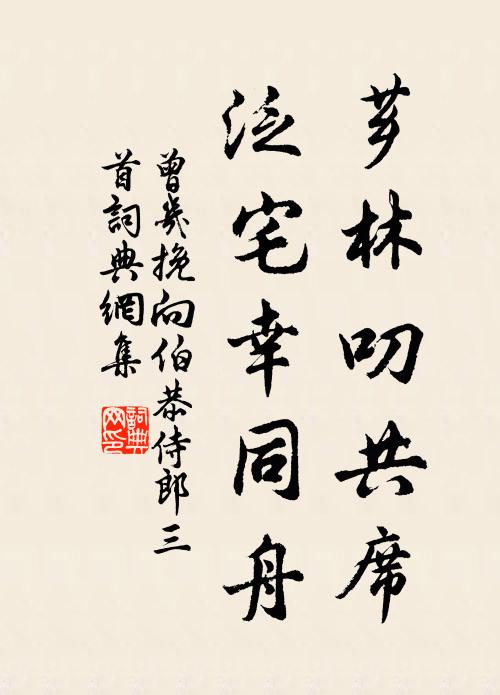 芗林叨共席
泛宅幸同舟
曾几挽向伯恭侍郎三
首詞典網集
詞典
网印